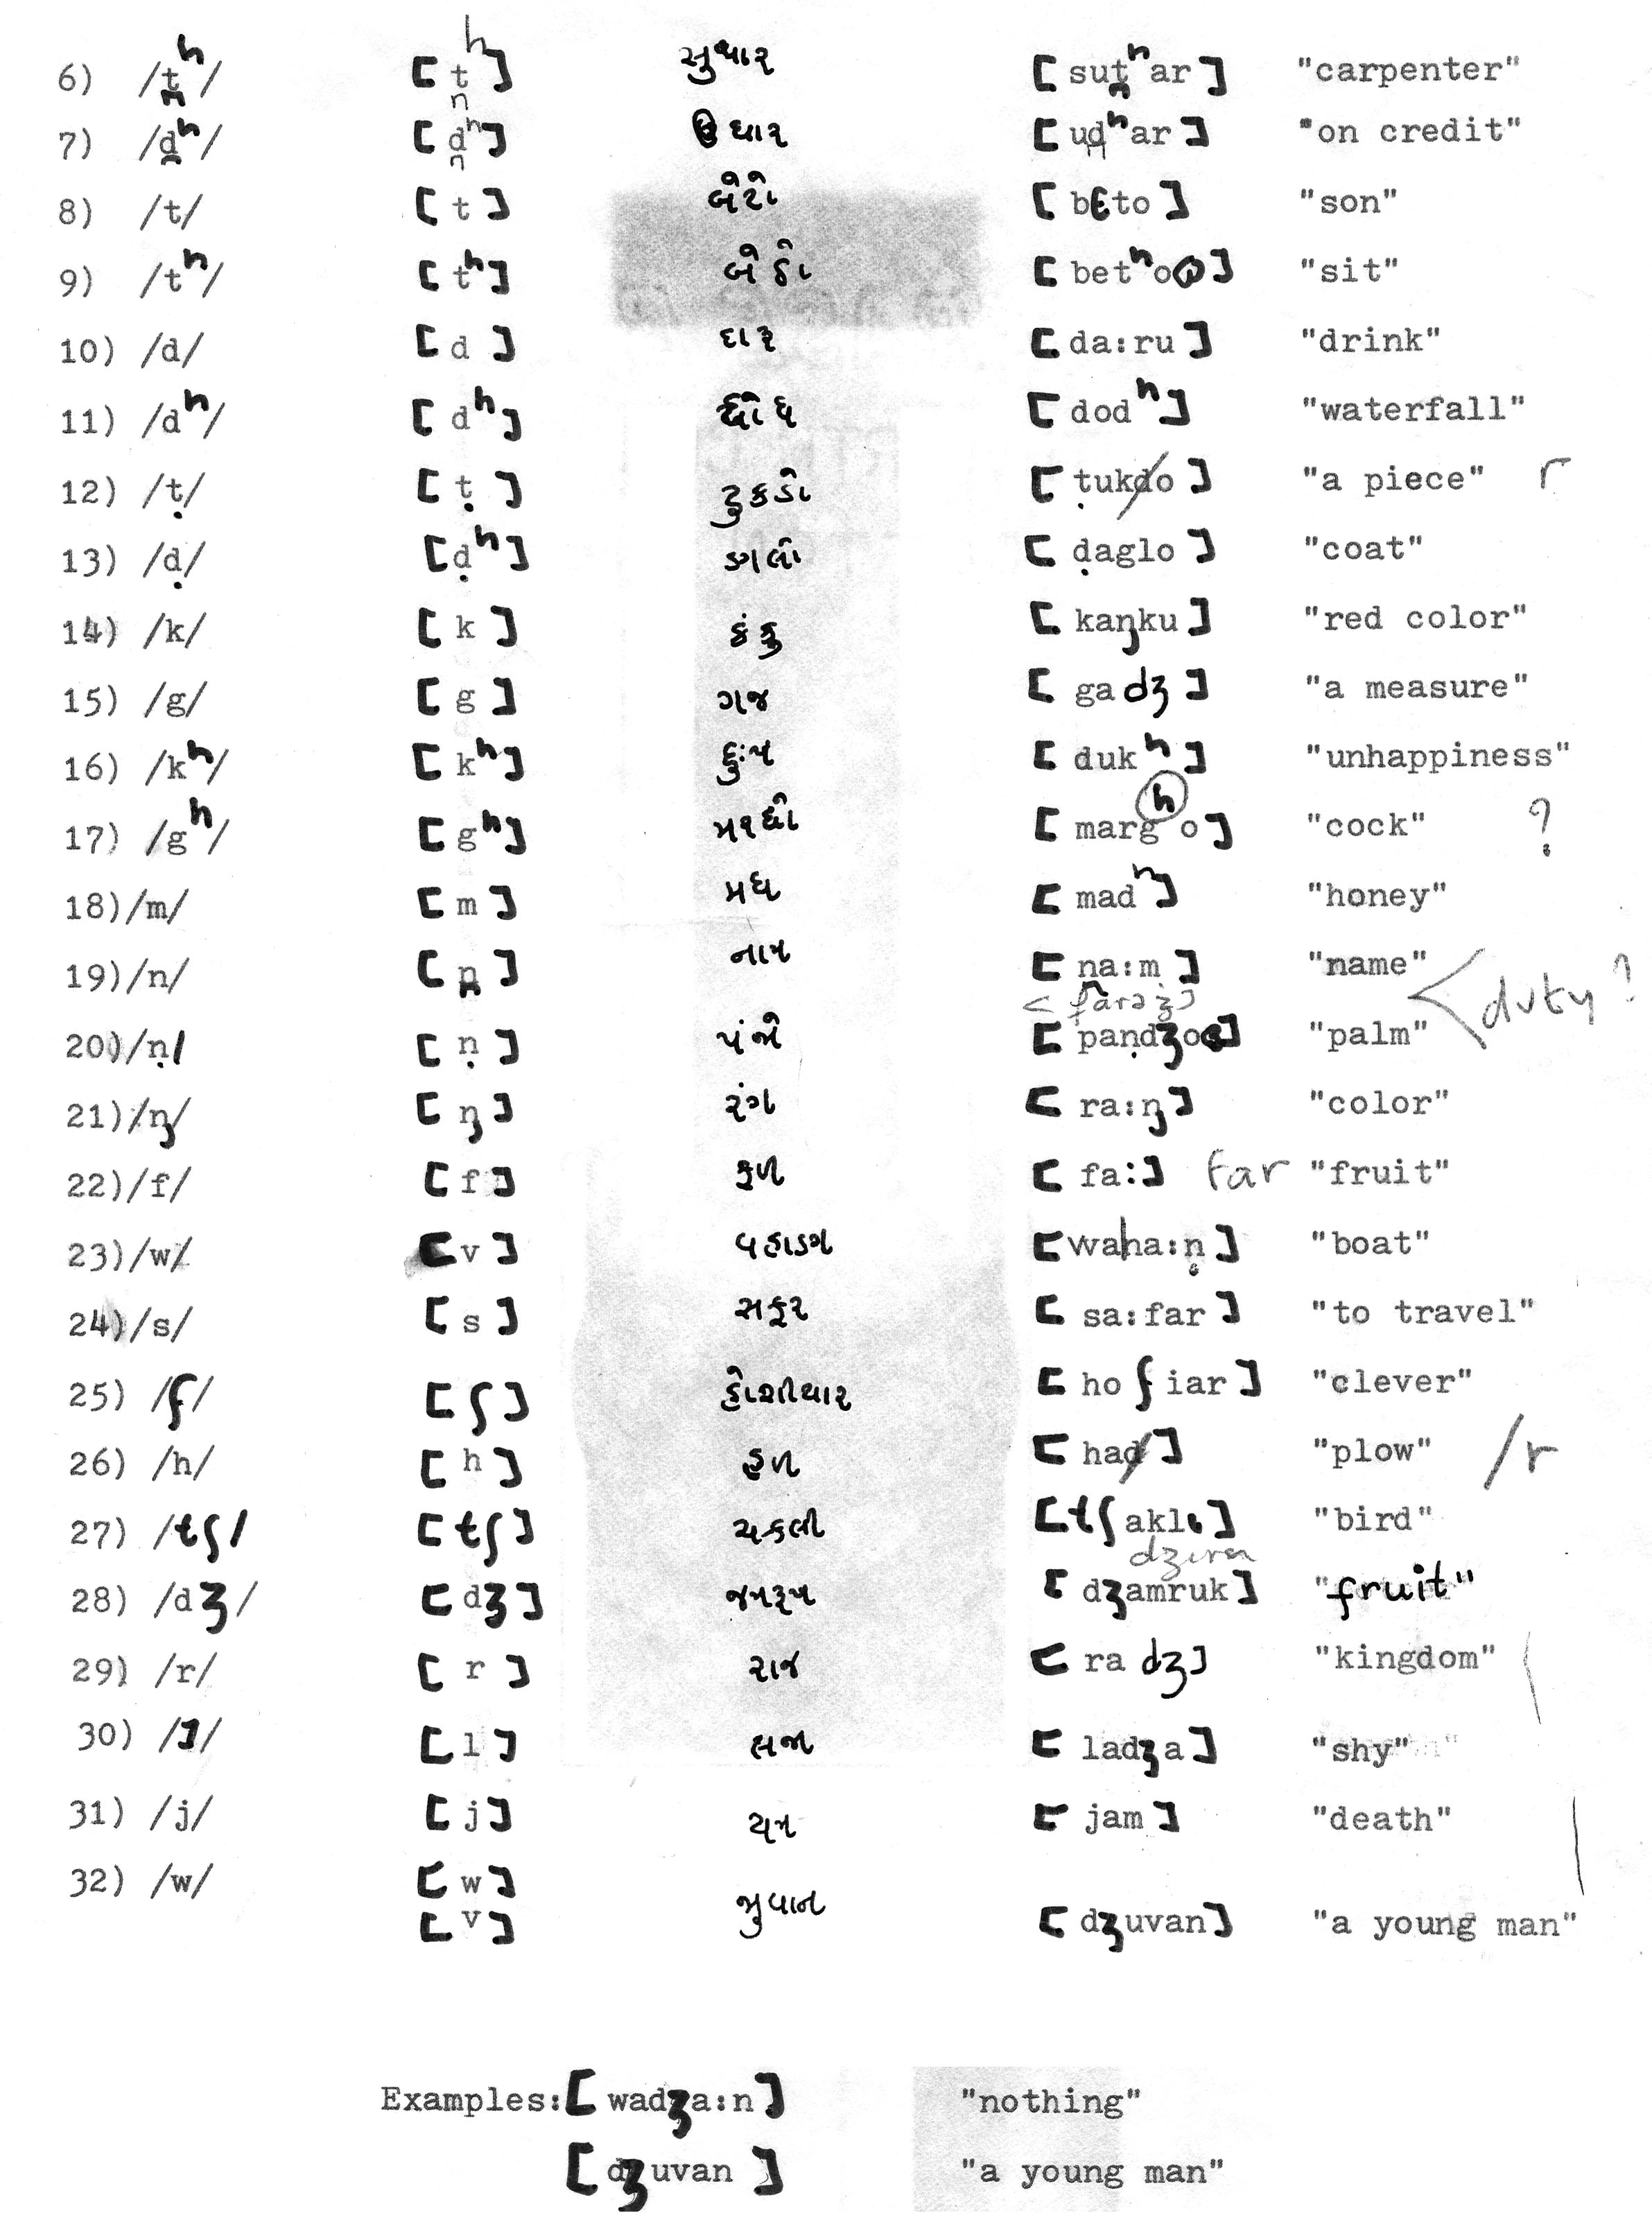 6) /t̪ʰ/ [t̪ʰ] સુથાર [sut̪ʰar] "carpenter"
7) /d̪ʰ/ [d̪ʰ] ઉધાર [ud̪ʰar] "on credit"
8) /t/ [t] બેટો [bɛto] "son"
9) /tʰ/ [tʰ] બેઠો [betʰo] "sit"
10) /d/ [d] દારૂ [da:ru] "drink"
11) /dʰ/ [dʰ] ધોધ [dodʰ] "waterfall"
12) /ṭ/ [ṭ] ટુકડો [ṭukdo] "a piece" r
13) /ḍ/ [ḍʰ] ડગલો [ḍaglo] "coat"
14) /k/ [k] કંકુ [kaŋku] "red color"
15) /g/ [g] ગજ [gadʒ] "a measure"
16) /kʰ/ [kʰ] દુઃખ [dukʰ] "unhappiness"
17) /gʰ/ [gʰ] મરઘો [margʰo] "cock" ?
18)/m/ [m] મધ [madʰ] "honey"
19)/n/ [n̪] નામ [n̪a:m] "name"
< farəz] < duty ?
20)/ṇ/ [ṇ] પંજો [paṇdʒo] "palm"
21)/ŋ/ [ŋ] રંગ [ra:ŋ] "color"
22)/f/ [f] ફળ [fa:] far "fruit"
23)/w/ [v] વહાણ [waha:ṇ] "boat"
24)/s/ [s] સફર [sa:far] "to travel"
25) /ʃ/ [ʃ] હોશીયાર [hoʃiar] "clever"
26) /h/ [h] હળ [had] "plow" /r
27) /tʃ/ [tʃ] ચકલી [tʃaklɩ] "bird"
28) /dʒ/ [dʒ] જમરૂખ [dʒamruk] "fruit"
29) /r/ [r] રાજ [radʒ] "kingdom"
30) /l/ [l] લજા [ladʒa] "shy"
31) /j/ [j] યમ [jam] "death"
32) /w/ [w]
[v] જુવાન [dʒuvan] "a young man"
Examples:[wadʒa:n] "nothing"
[dʒuvan] "a young man"